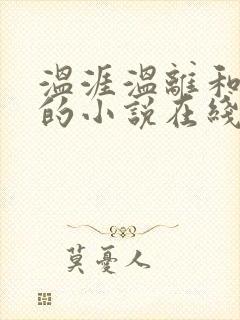 温涯温離和
的小說在綫
莫憂人